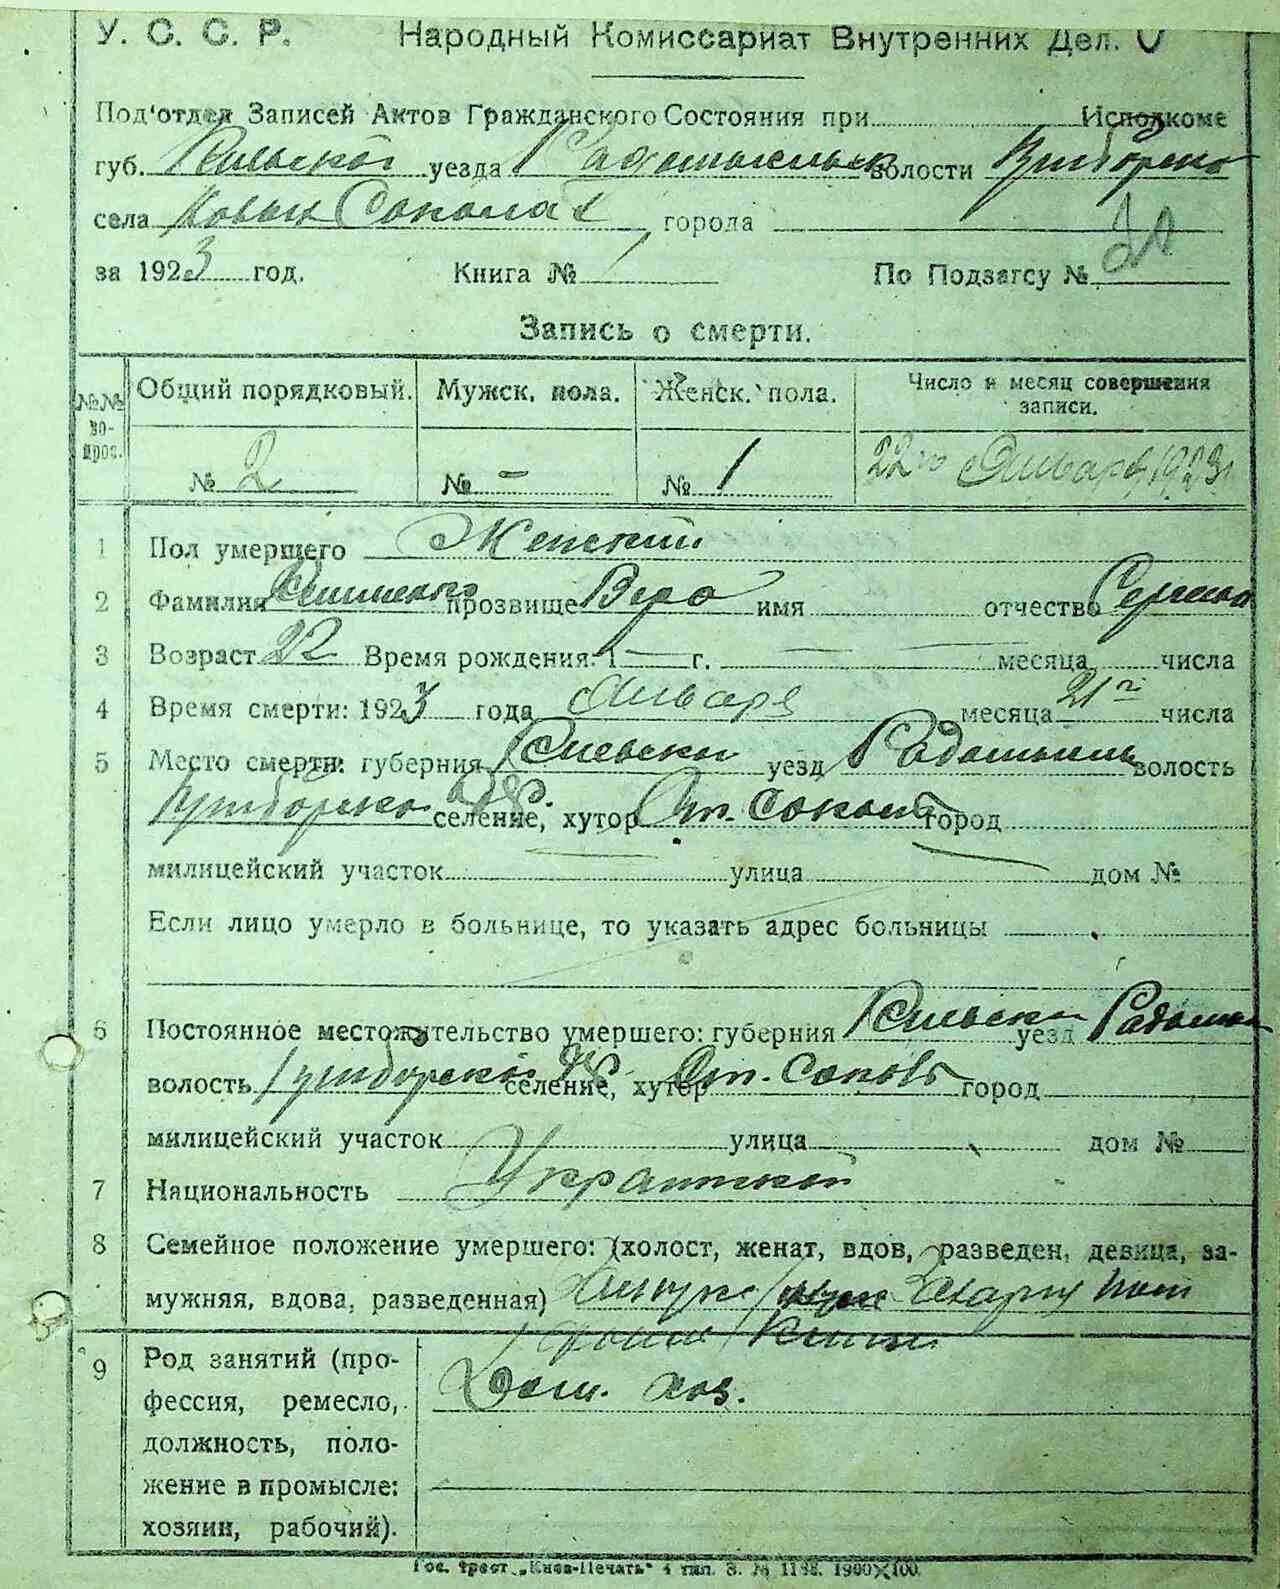 У. С. С. Р. Народный Комиссариат Внутренних Дел.
Под'отдел Записей Актов Гражданского Состояния при Исполкоме
губ. Киевской уезда Радомысльск волости Приборско
села Новых Соколах города
за 1923 год. Книга № 1 По Подзагсу №
Запись о смерти.
№№ во-прос. Общий порядковый. Мужск. пола. Женск. пола. Число и месяц совершения записи.
№ 2 № - № 1 22го Января 1923г
1 Пол умершего Женский
2 Фамилия прозвище Вера имя отчество
3 Возраст 22 Время рождения: 1 — г. — месяца числа
4 Время смерти: 1923 года Января месяца 21го числа
5 Место смерти: губерния Киевска уезд Радомысль волость
Приборско селение, хутор Сокол город
милицейский участок улица дом №
Если лицо умерло в больнице, то указать адрес больницы
6 Постоянное местожительство умершего: губерния Киевска уезд Радомы
волость Приборской селение, хутор город
милицейский участок улица дом №
7 Национальность Украинской
8 Семейное положение умершего: (холост, женат, вдов, разведен, девица, за-
мужняя, вдова, разведенная)
9 Род занятий (про-
фессия, ремесло, Дом. хоз.
должность, поло-
жение в промысле:
хозяин, рабочий).
Гос. трест „Киев-Печать" 4 тип. З. № 1148. 1900×100.